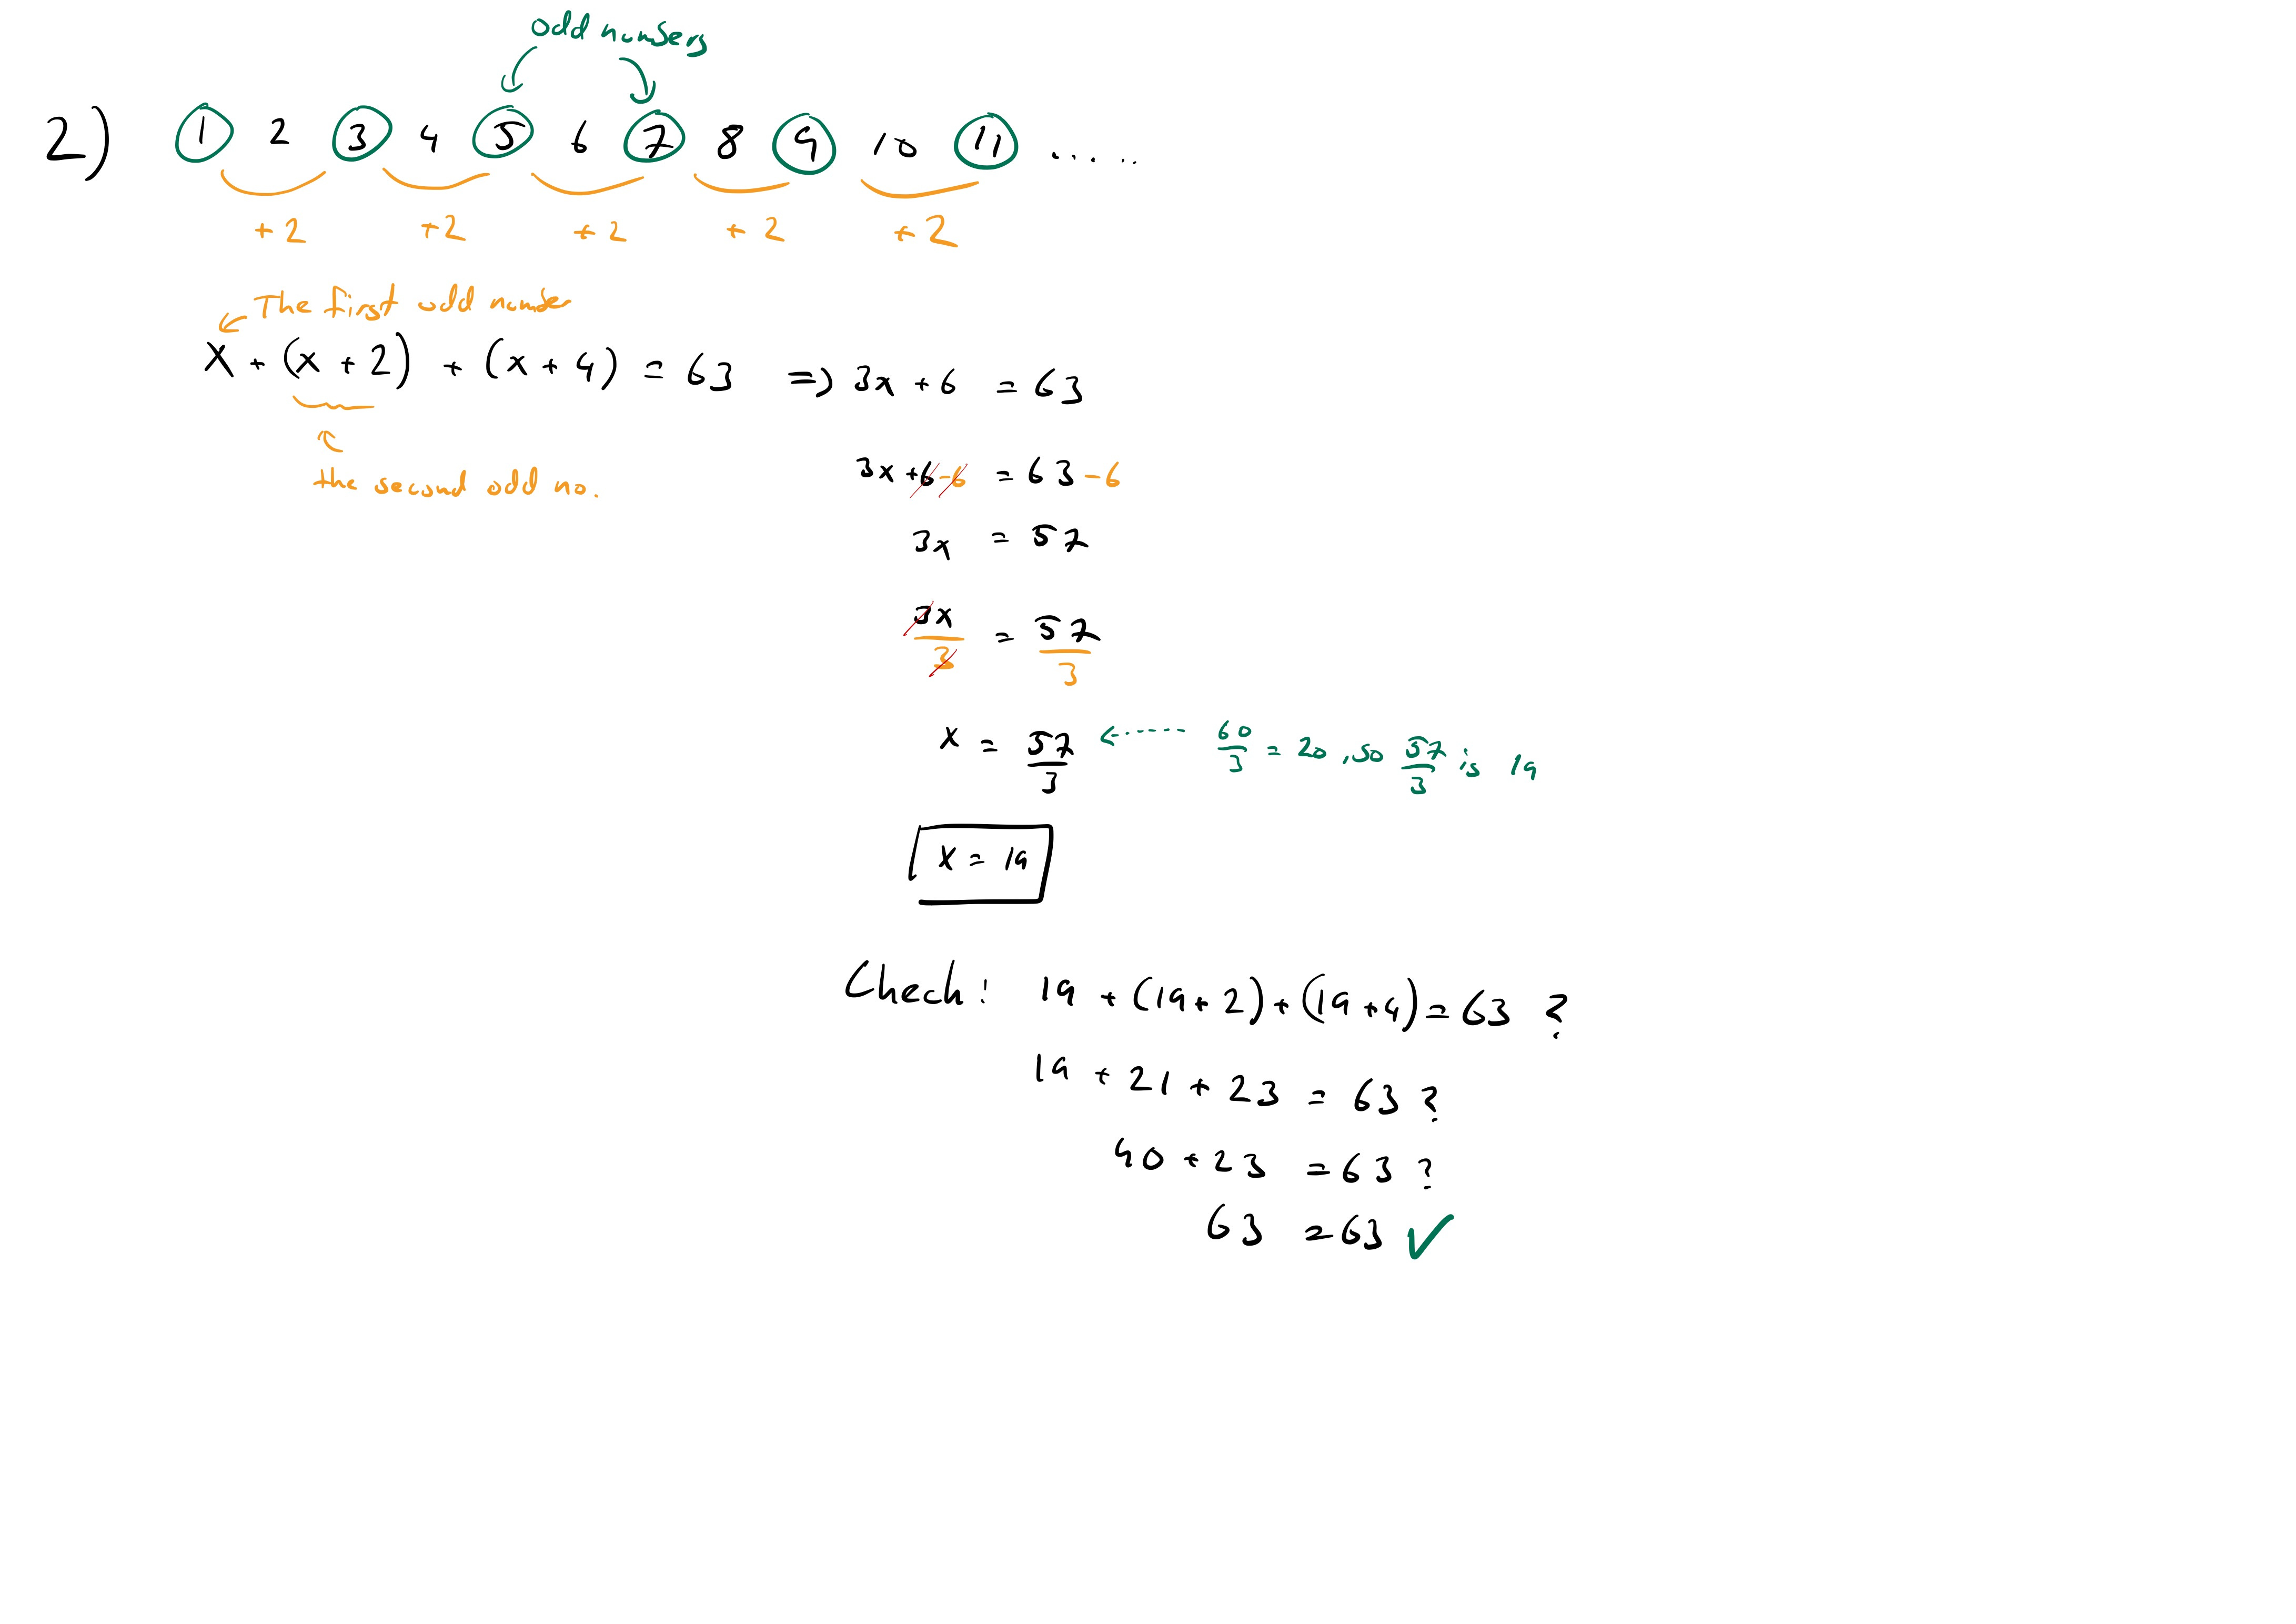 odd numbers
2) 1 2 3 4 5 6 7 8 9 10 11 .....
+2 +2 +2 +2 +2
The first odd number
x + (x + 2) + (x + 4) = 63 => 3x + 6 = 63
the second odd no.
3x + 6 - 6 = 63 - 6
3x = 57
3x/3 = 57/3
x = 57/3 <----- 60/3 = 20, so 57/3 is 19
x = 19
Check: 19 + (19+2) + (19+4) = 63 ?
19 + 21 + 23 = 63 ?
40 + 23 = 63 ?
63 = 63 ✓